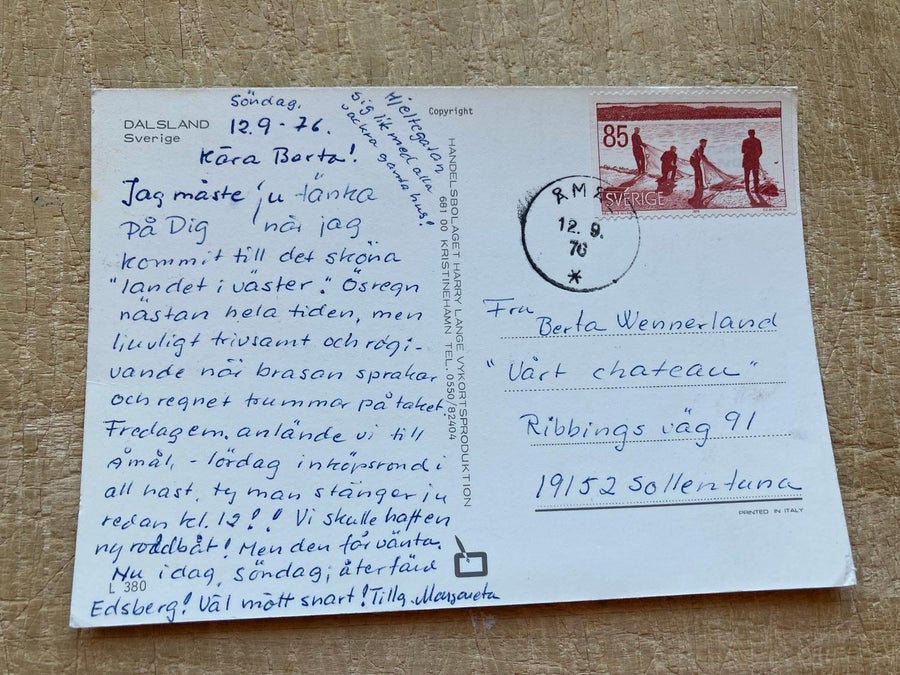 DALSLAND
Sverige
Söndag.
12.9-76.
Kära Berta!
Jag måste ju tänka
på Dig när jag
kommit till det sköna
"landet i väster". Ösregn
nästan hela tiden, men
ljuvligt trivsamt och rogi-
vande när brasan sprakar
och regnet trummar på taket.
Fredag em. anlände vi till
Åmål, - lördag inköpsrond i
all hast, ty man stänger ju
redan kl. 12!! Vi skulle haft en
ny roddbåt! Men den får vänta.
Nu idag, söndag, återfärd
Edsberg! Väl mött snart! Tillg. Margareta
L 380
Hjeltegatan
sig lik med alla
vackra gamla hus!
Copyright
HANDELSBOLAGET HARRY LANGE VYKORTSPRODUKTION
681 00 KRISTINEHAMN TEL. 0550/82404
85
SVERIGE
ÅMÅ
12. 9.
76
*
Fru
Berta Wennerland
"Vårt chateau"
Ribbings väg 91
19152 Sollentuna
PRINTED IN ITALY